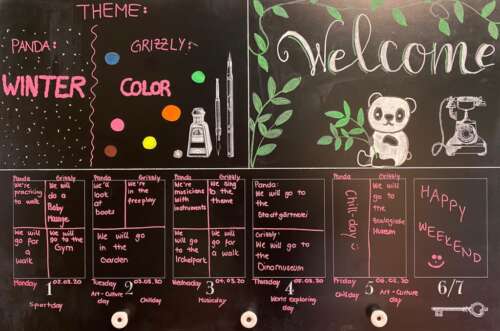 THEME:
PANDA:
WINTER
GRIZZLY:
COLOR
Welcome
Panda
Grizzly
We're
practising
to walk
We will
do a
Baby
Massage
We will
go for
a walk
We will
go to the
Gym
Monday 1 02.03.20
Sportsday
Panda
Grizzly
We'll
look
at
books
We're in the
freeplay
We will
go
in the
Garden
Tuesday 2 03.03.20
Art - Culture
day
Childay
Panda
Grizzly
We're
musicians
with
instruments
We sing
to the
theme
We will
go
to the
Irchelpark
We will
go for
a walk
Wednesday 3 04.03.20
Musicday
Panda:
We will go
to the
Stadtgärtnerei
Grizzly:
We will go
to the
Dinomuseum
Thursday 4 05.03.20
World exploring
day
Panda
Grizzly
Chill-day :)
We will
go to
the
Zoologische
Museum
Friday 5 06.03.20
Childay
Art - Culture
day
HAPPY
WEEKEND
6/7